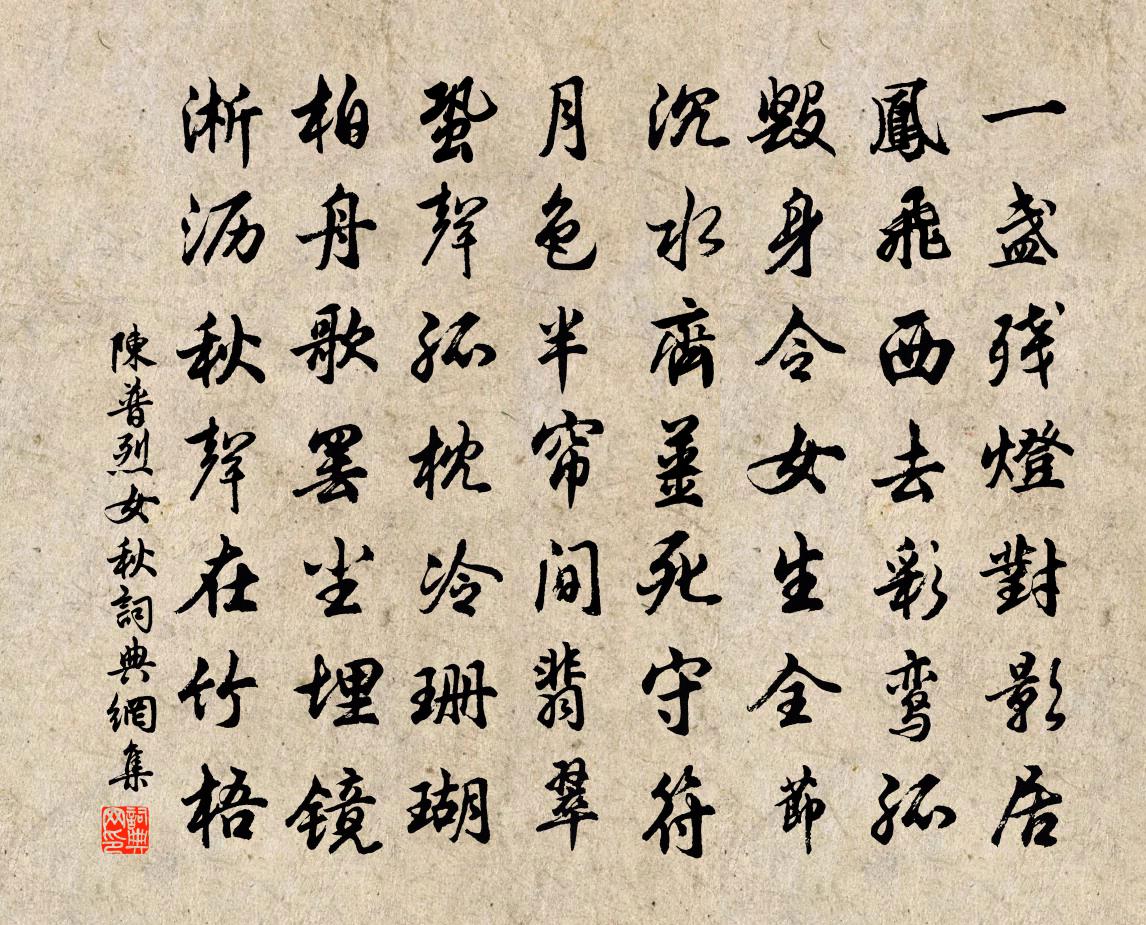 一盏残燈對影居
鳳飛西去彩鸾孤
毀身令女生全節
沉水齊姜死守符
月色半帘间翡翠
蛩聲孤枕冷珊瑚
柏舟歌罢尘埋镜
淅沥秋聲在竹梧
陳普烈女秋詞典網集
詞典網印